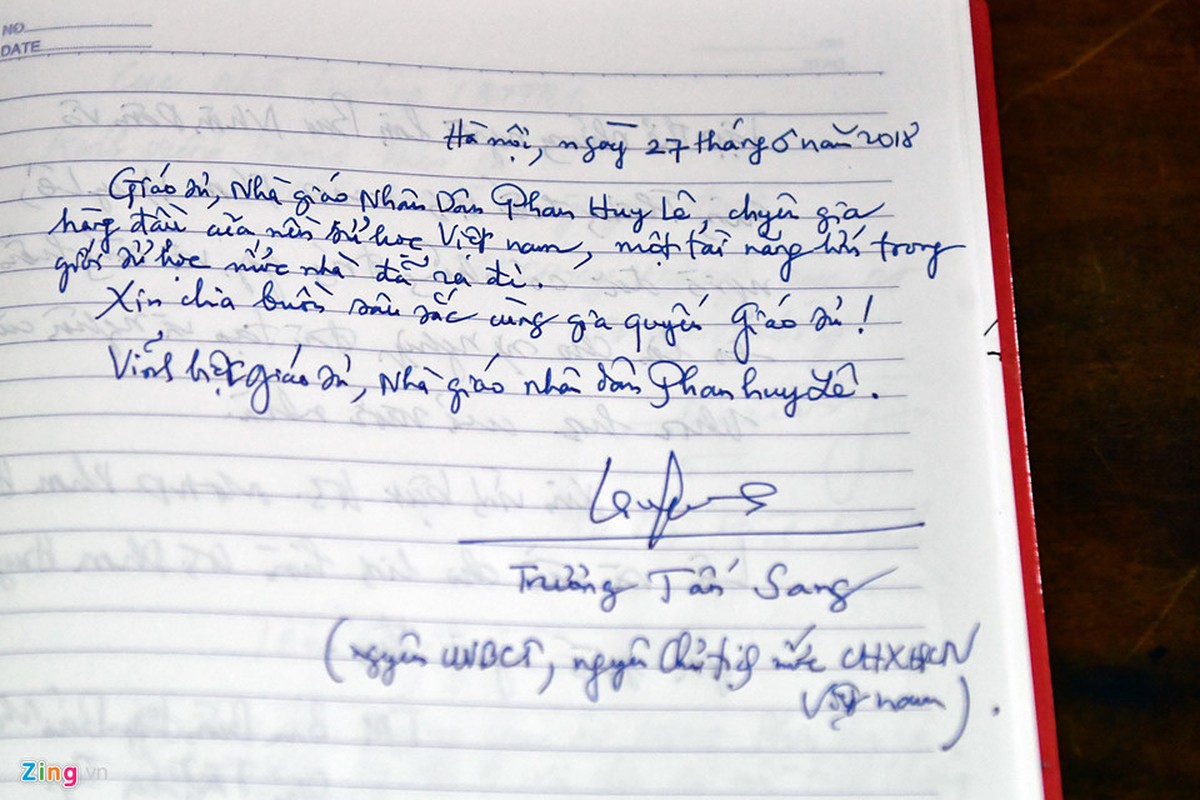 NO
DATE
Hà nội, ngày 27 tháng 6 năm 2018
Giáo sư, Nhà giáo Nhân Dân Phan Huy Lê, chuyên gia
hàng đầu của nền sử học Việt nam, một tài năng lớn trong
giới sử học nước nhà đã ra đi.
Xin chia buồn sâu sắc cùng gia quyến Giáo sư!
Vĩnh biệt giáo sư, Nhà giáo nhân dân Phan huy Lê.
Trương Tấn Sang
(nguyên UVBCT, nguyên Chủ tịch nước CHXHCN
Việt nam).
Zing.vn